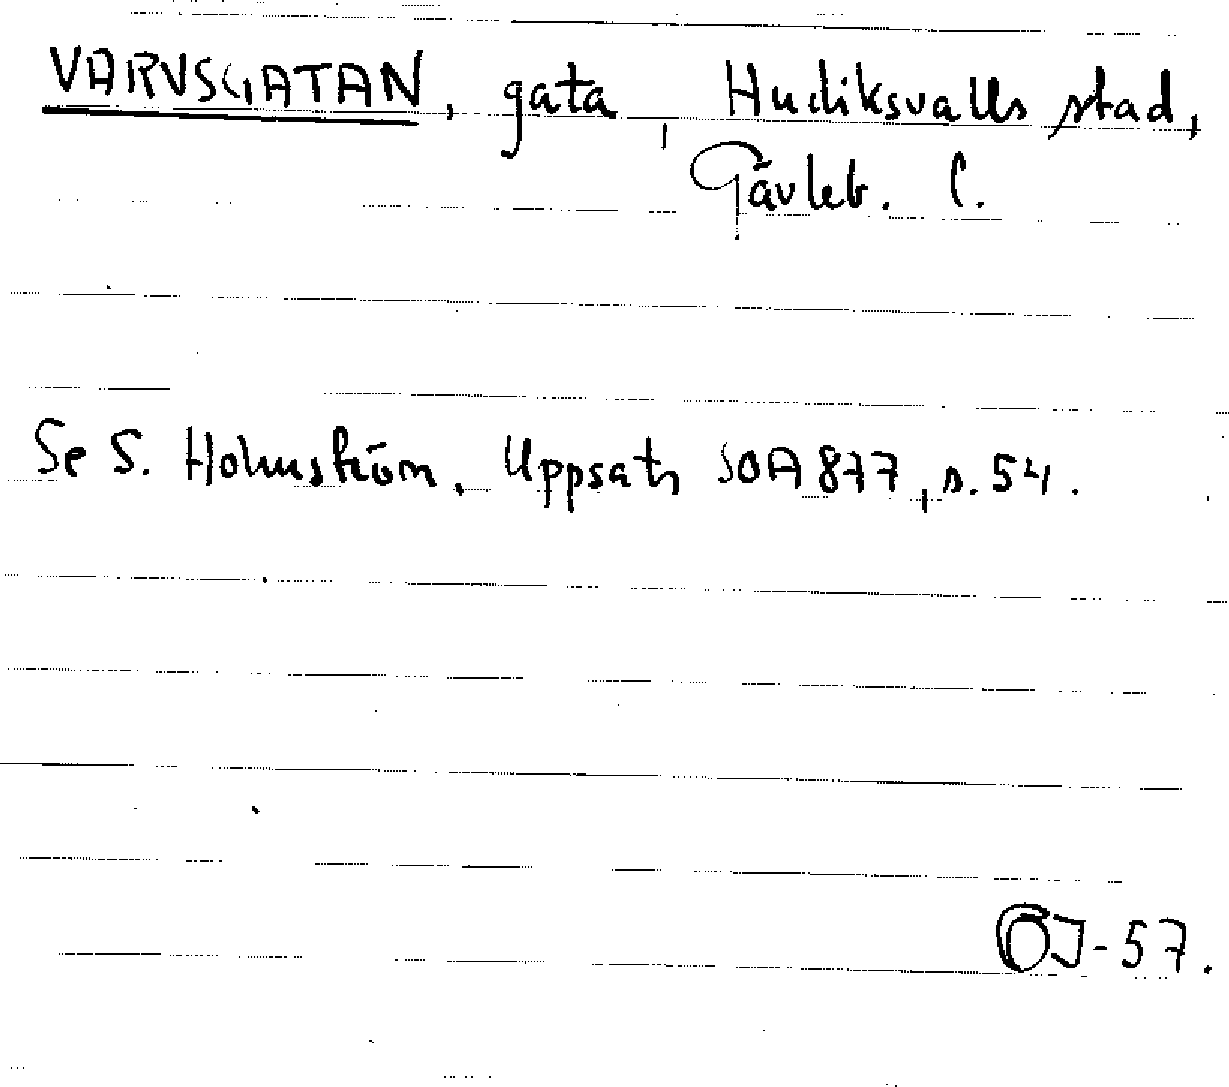 VARVSGATAN, gata, Hudiksvalls stad,
Gävleb. l.
Se S. Holmström. Uppsats SOA 877, s. 54.
OJ-57.